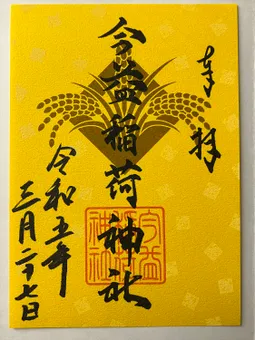 奉拝
今益稲荷神社
令和五年
三月二十七日
今益稲荷神社